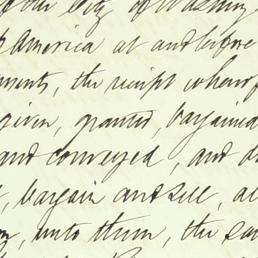 of the City of Washing
America at and before
ments, the receipt whereof
given, granted, bargained
and conveyed, and d
, bargain and sell, al
unto them, the sa